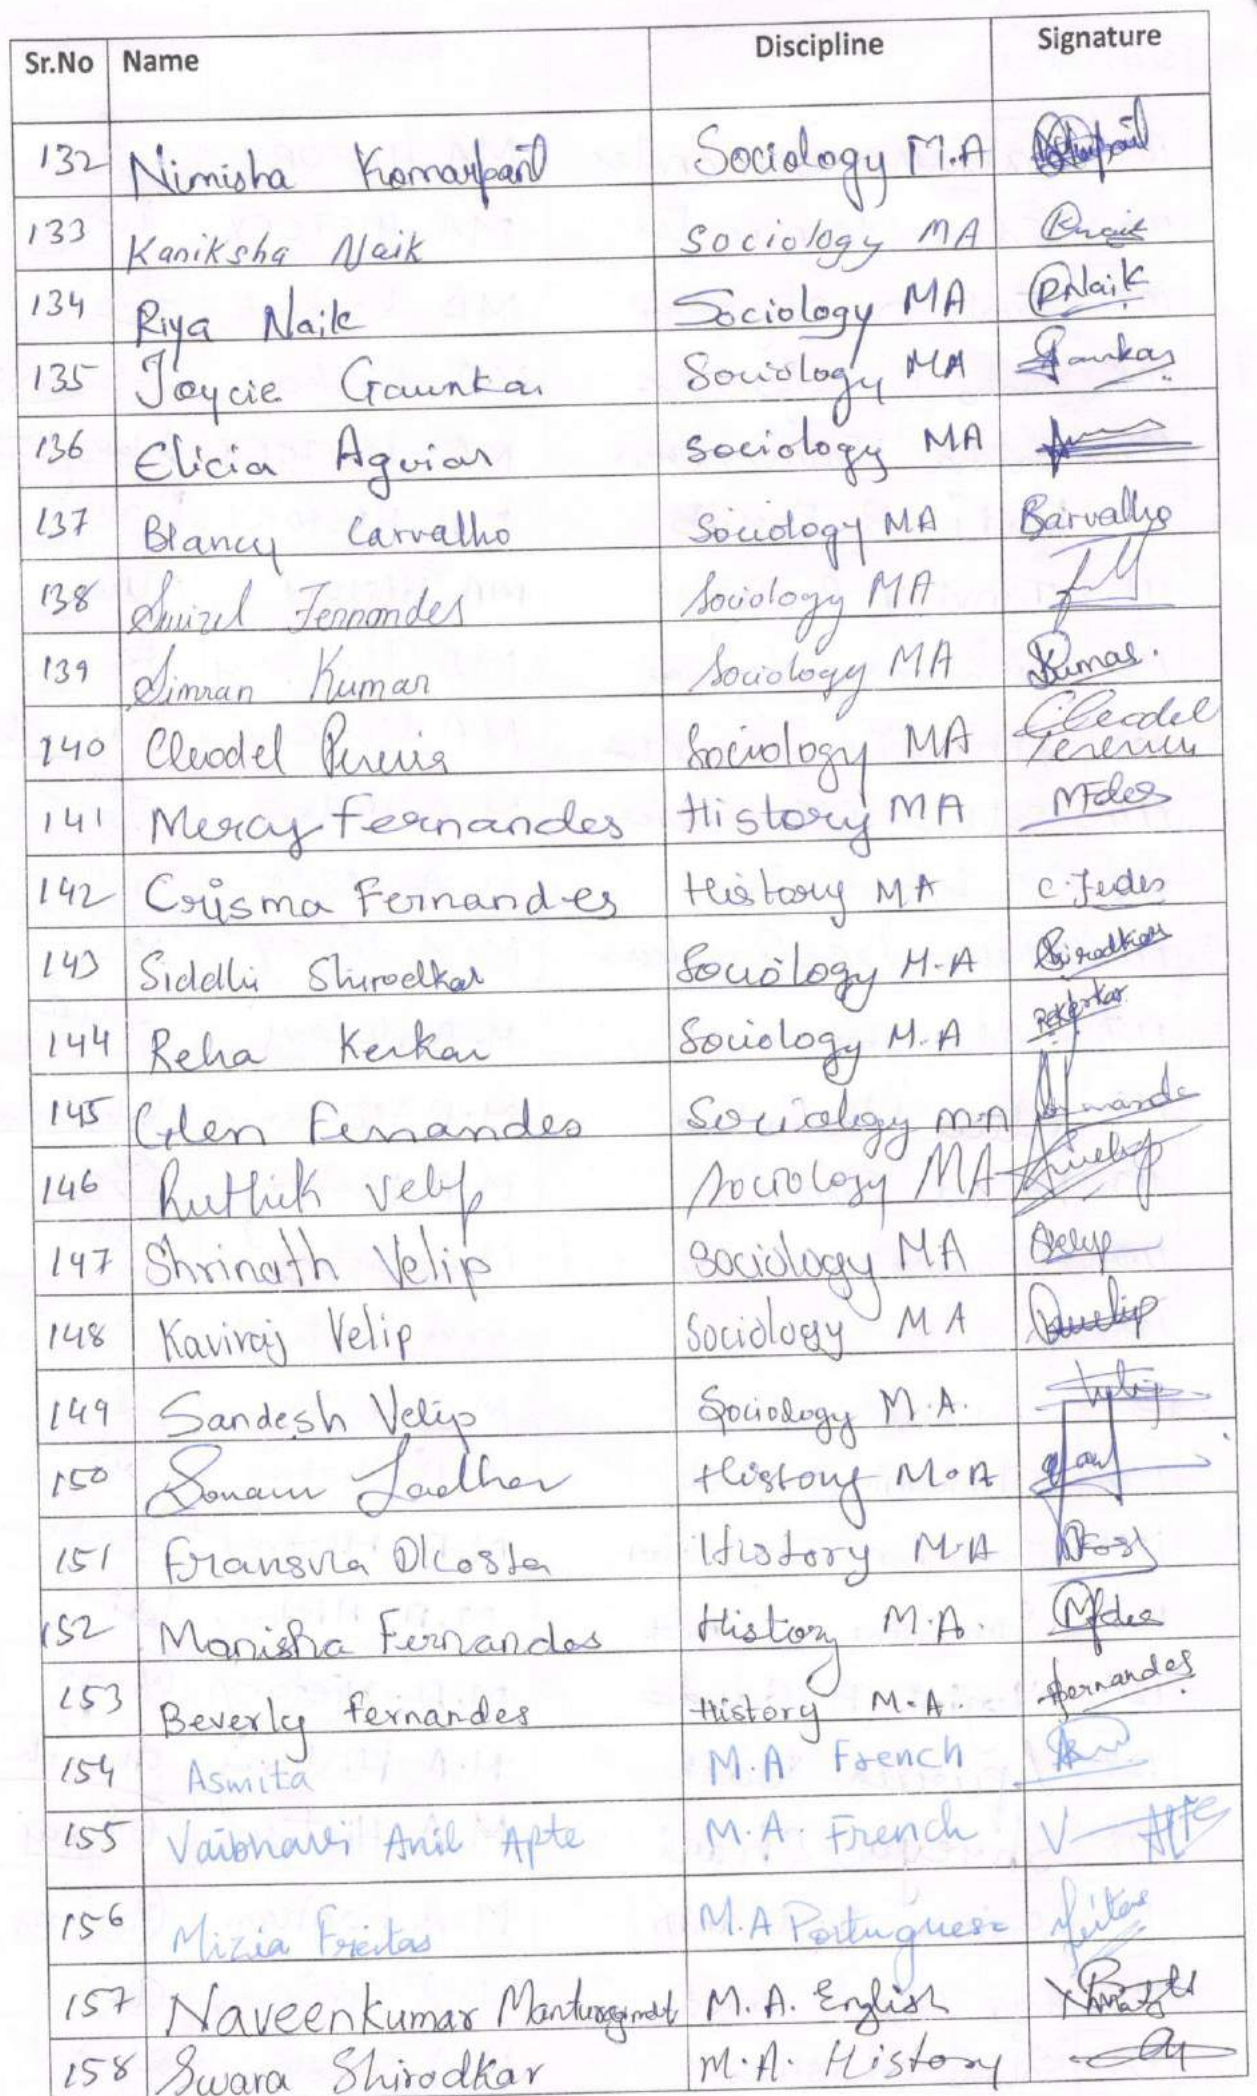 Sr.No Name Discipline Signature
132 Nimisha Komarpant Sociology M.A
133 Kaniksha Naik Sociology MA
134 Riya Naik Sociology MA RNaik
135 Joycie Gaunkar Sociology MA Gaunkar
136 Elicia Aguiar Sociology MA
137 Blancy Carvalho Sociology MA Barvalho
138 Fernandes Sociology MA
139 Simran Kumar Sociology MA Kumar.
140 Cleodel Pereira Sociology MA Cleodel
Pereira
141 Meracy Fernandes History MA MFdes
142 Crisma Fernandes History MA C.Fedes
143 Siddhi Shirodkar Sociology M.A Shirodkar
144 Reha Kerkar Sociology M.A
145 Glen Fernandes Sociology M.A
146 Ruthik Velip Sociology MA
147 Shrinath Velip Sociology MA
148 Kaviraj Velip Sociology MA
149 Sandesh Velip Sociology M.A.
150 Sonam History M.A
151 Fransvia Dcosta History M.A
152 Manisha Fernandes History M.A Mfdes
153 Beverly Fernandes History M.A. Fernandes
154 Asmita M.A French
155 Vaibhavi Anil Apte M.A. French
156 Mizia Freitas M.A Portuguese
157 Naveenkumar M.A. English
158 Swara Shirodkar M.A. History